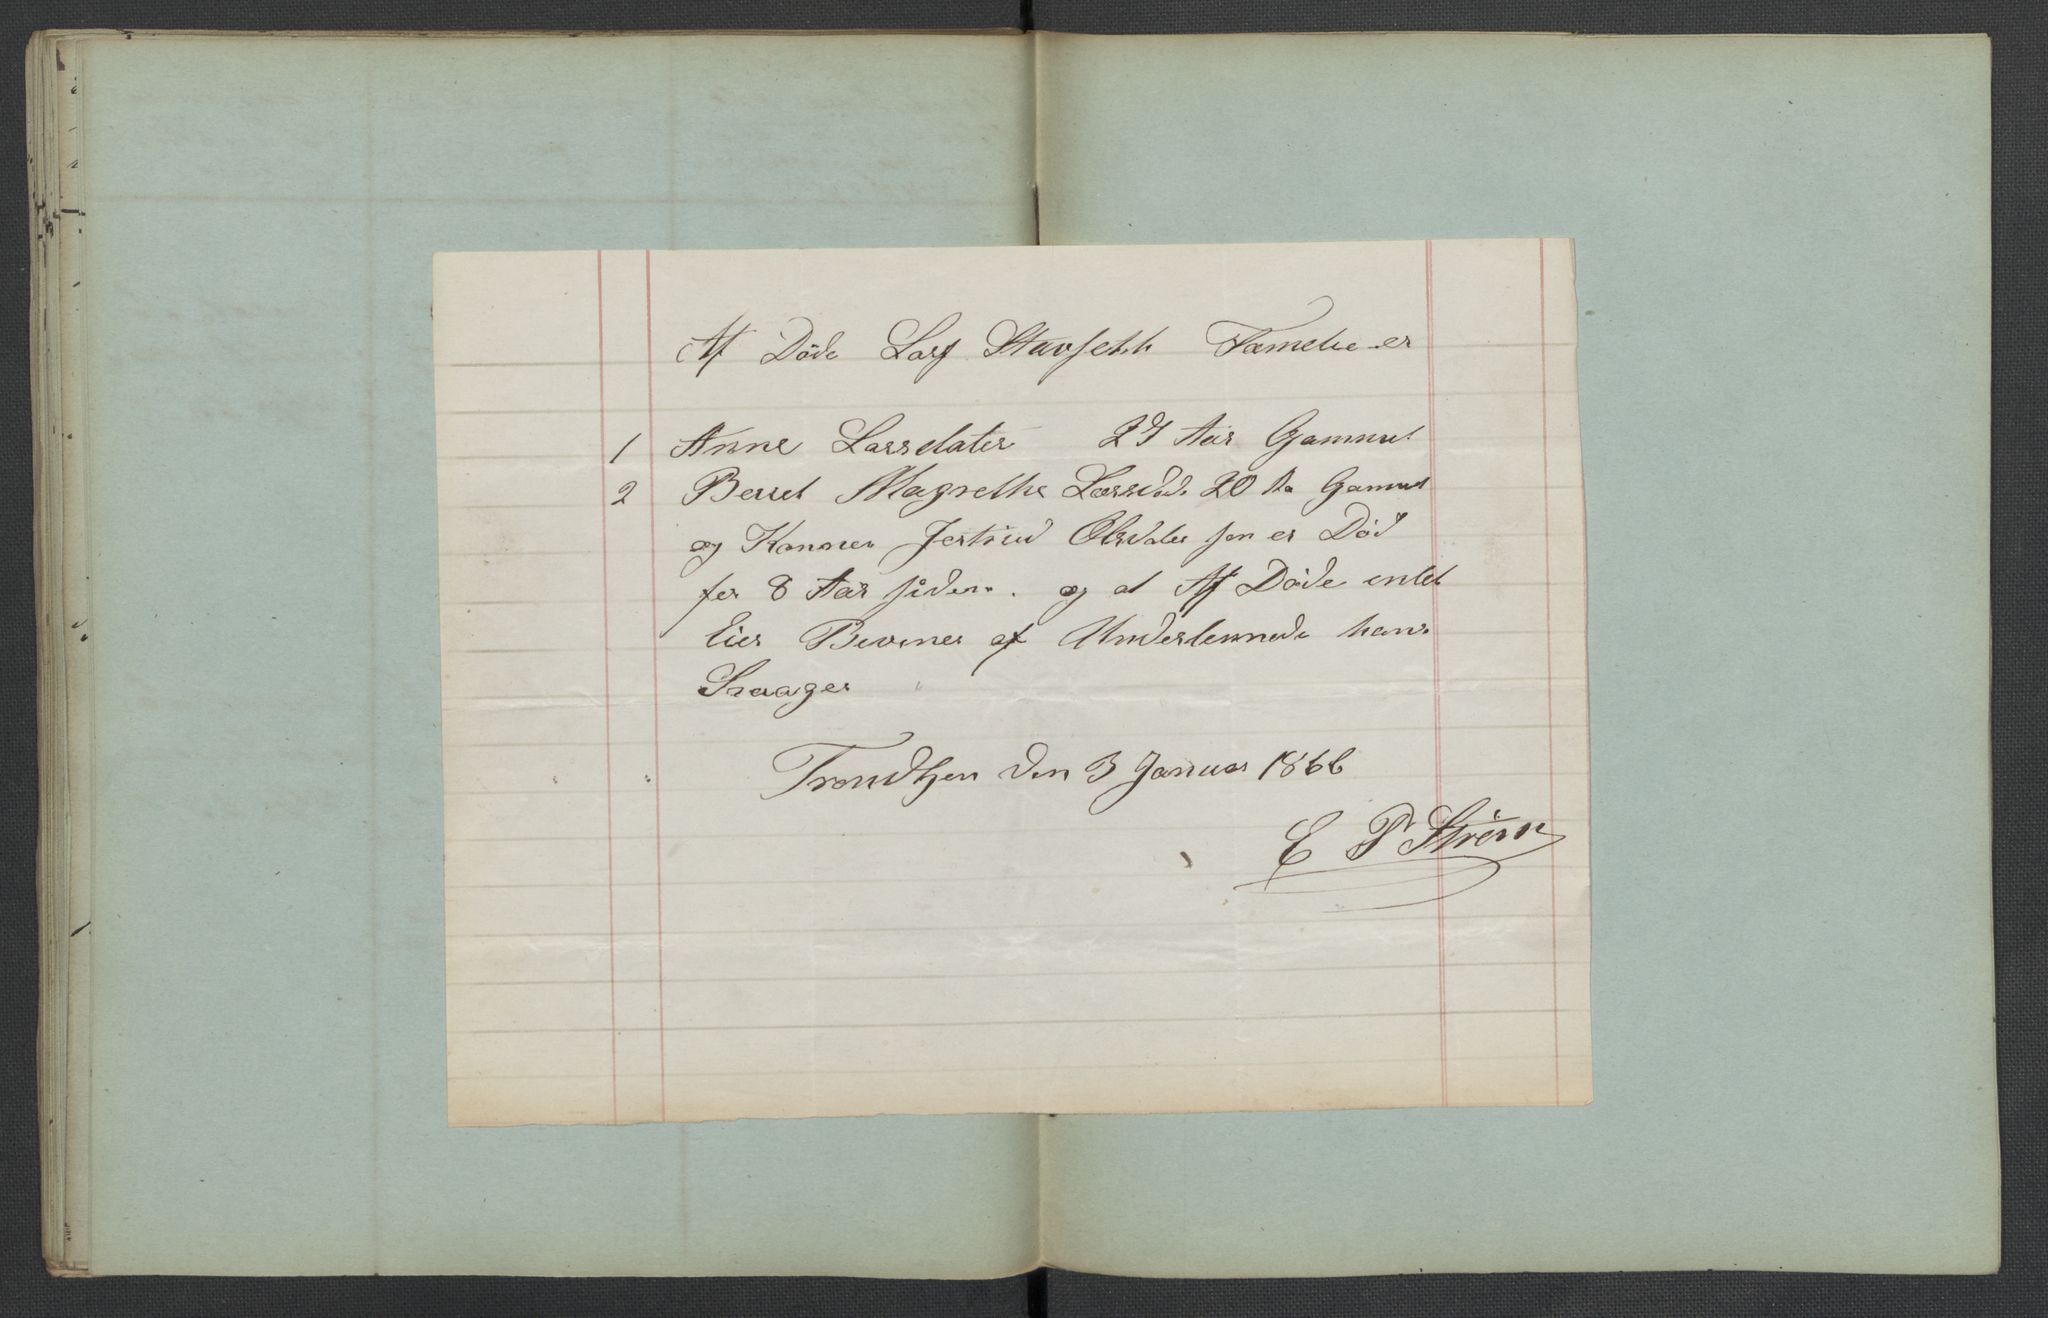 Af Döde Lars Stavseth Famelie er
1 Anne Larsdater 27 Aar Gammel
2 Beret Magrethe Larsdat 20 Aa Gammel
og Konnen Jertrud Olsdater som er Död
for 8 Aar siden. og at Af Döde intet
Eier Bevines af Underteinnede hans
Svoager
Trondhjen den 3 Januar 1866
E P Ström